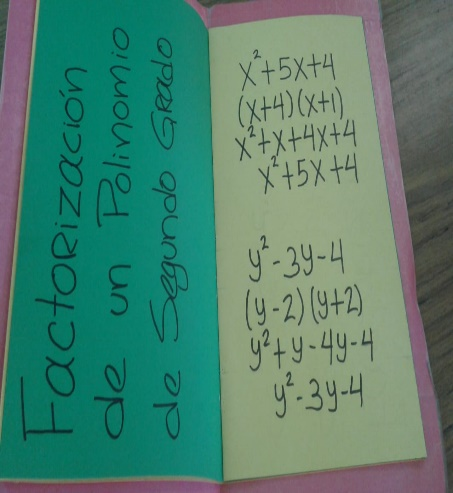 Factorización
de un Polinomio
de Segundo Grado
x²+5x+4
(x+4)(x+1)
x²+x+4x+4
x²+5x+4
y²-3y-4
(y-2)(y+2)
y²+y-4y-4
y²-3y-4